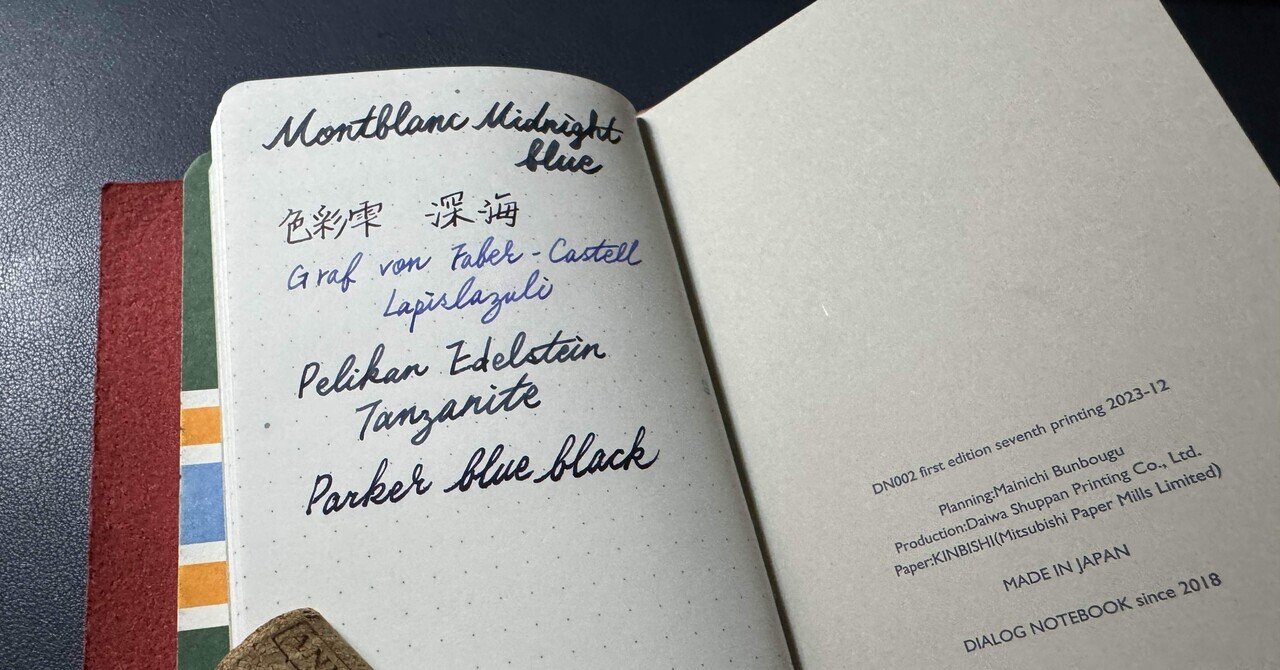 Montblanc Midnight
blue
色彩雫 深海
Graf von Faber-Castell
Lapislazuli
Pelikan Edelstein
Tanzanite
Parker blue black
DN002 first edition seventh printing 2023-12
Planning:Mainichi Bunbougu
Production:Daiwa Shuppan Printing Co., Ltd.
Paper:KINBISHI(Mitsubishi Paper Mills Limited)
MADE IN JAPAN
DIALOG NOTEBOOK since 2018